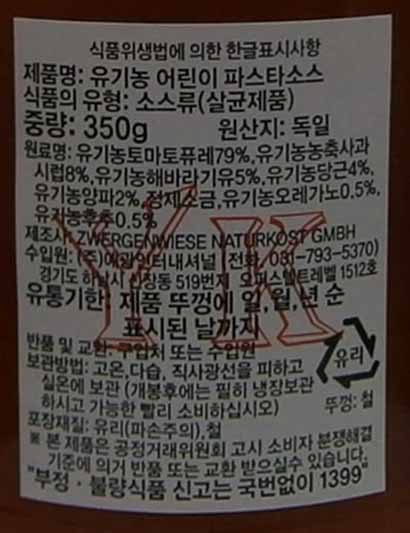 식품위생법에 의한 한글표시사항
제품명: 유기농 어린이 파스타소스
식품의 유형: 소스류(살균제품)
중량: 350g 원산지: 독일
원료명: 유기농토마토퓨레79%,유기농농축사과
시럽8%,유기농해바라기유5%,유기농당근4%,
유기농양파2%,정제소금,유기농오레가노0.5%,
유기농후추0.5%
제조사: ZWERGENWIESE NATURKOST GMBH
수입원: (주)에과인터내셔널 전화: 031-793-5370)
경기도 하남시 신장동 519번지 오피스텔트레벨 1512호
유통기한: 제품 뚜껑에 일,월,년 순
표시된 날까지
반품 및 교환: 구입처 또는 수입원
보관방법: 고온,다습, 직사광선을 피하고
실온에 보관 (개봉후에는 필히 냉장보관
하시고 가능한 빨리 소비하십시오)
포장재질: 유리(파손주의),철
유리
뚜껑: 철
※ 본 제품은 공정거래위원회 고시 소비자 분쟁해결
기준에 의거 반품 또는 교환 받으실수 있습니다.
"부정·불량식품 신고는 국번없이 1399"
YK